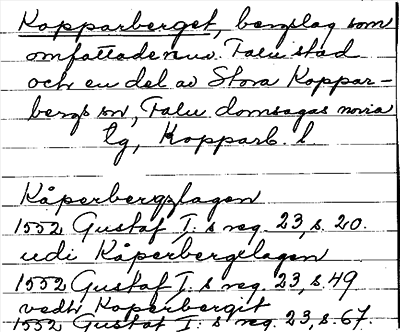 Kopparberget, bergslag som
omfattade nuv. Falu stad
och en del av Stora Koppar-
bergs sn, Falu domsagas norra
tg, Kopparb. l.
Kåperbergslagen
1552 Gustaf I:s reg. 23, s. 20.
udi Kåperbergslagen
1552 Gustaf I:s reg. 23, s. 49
vedh Koperbergit
1552 Gustaf I:s reg. 23, s. 67.